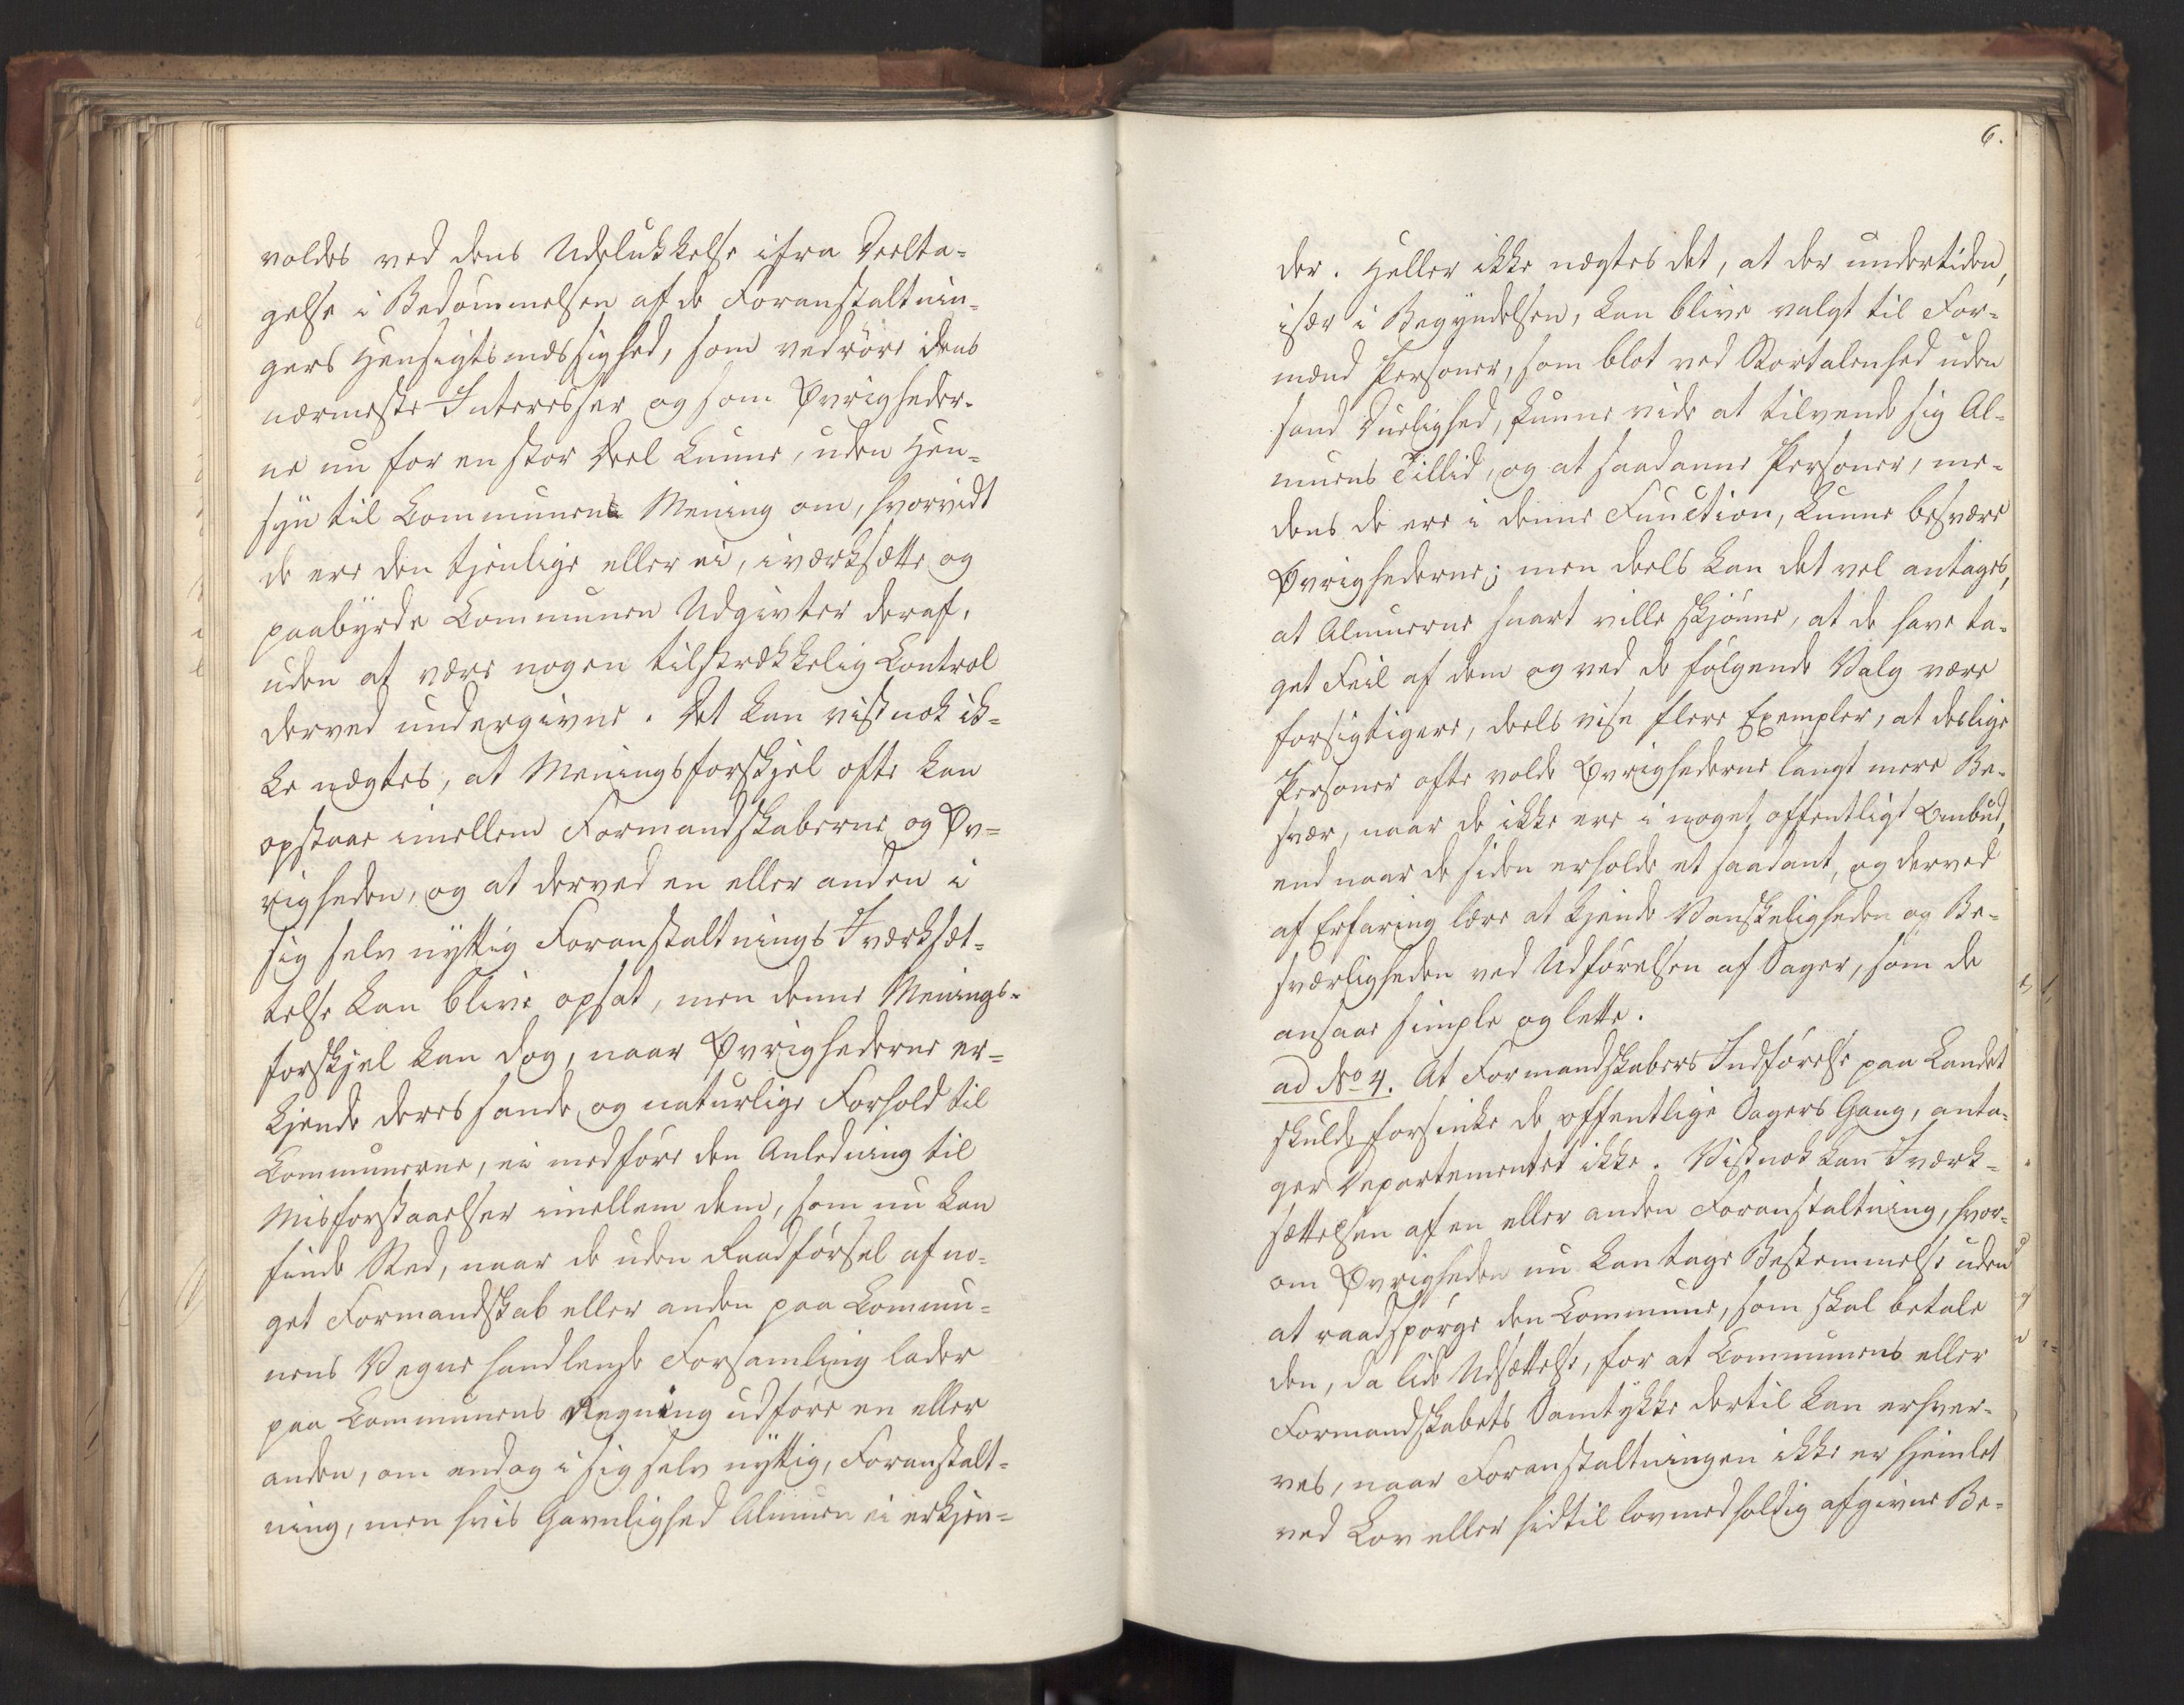 voldes ved dens Udelukkelse ifra Deelta-
gelse i Bedømmelsen af de Foranstaltnin-
gers Hensigtsmæssighed, som vedröre dens
nærmeste Interesser og som Øvrigheder-
ne nu for en stor Deel kunne, uden Hen-
syn til Communens Mening om, hvorvidt
de ere den tjenlige eller ei, iværksætte og
paabyrde Communen Udgivter deraf,
uden at være nogen tilstrækkelig Control
derved undergivne. Det kan vistnok ik-
ke nægtes, at Meningsforskjel ofte kan
opstaae imellem Formandskaberne og Øv-
righeden, og at derved en eller anden i
sig selv nyttig Foranstaltnings Iværksæt-
telse kan blive opsat, men denne Menings-
forskjel kan dog, naar Øvrighederne er-
kjende deres sande og naturlige Forhold til
Communerne, ei medføre den Anledning til
Misforstaaelser imellem dem, som nu kan
finde Sted, naar de uden Raadførsel af no-
get Formandskab eller anden paa Commu-
nens Vegne handlende Forsamling lader
paa Communens Regning udføre en eller
anden, om endog i sig selv nyttig, Foranstalt-
ning, men hvis Gavnlighed Almuen ei erkjen-
6.
der. Heller ikke nægtes det, at der undertiden,
især i Begyndelsen, kan blive valgt til For-
mænd Personer, som blot ved Stortalenhed uden
sand Duelighed, kunne vide at tilvende sig Al-
muens Tillid, og at saadanne Personer, me-
dens de ere i denne Function, kunne besvære
Øvrighederne; men deels kan det vel antages,
at Almuerne snart ville skjønne, at de have ta-
get Feil af dem og ved de følgende Valg være
forsigtigere, deels vise flere Exempler, at deslige
Personer ofte volde Øvrighederne langt mere Be-
svær, naar de ikke ere i noget offentligt Ombud,
end naar de siden erholde et saadant, og derved
af Erfaring lære at kjende Vanskeligheden og Be-
sværligheden ved Udførelsen af Sager, som de
ansaae simple og lette.
ad No 4. At Formandskabers Indførelse paa Landet
skulde forsinke de offentlige Sagers Gang, anta-
ger Departementet ikke. Vistnok kan Iværk-
sættelsen af en eller anden Foranstaltning, hvor-
om Øvrigheden nu kan tage Bestemmelse uden
at raadspørge den Commune, som skal betale
den, da lide Udsættelse, for at Communens eller
Formandskabets Samtykke dertil kan erhver-
ves, naar Foranstaltningen ikke er hjemlet
ved Lov eller hidtil lovmedholdig afgivne Be-